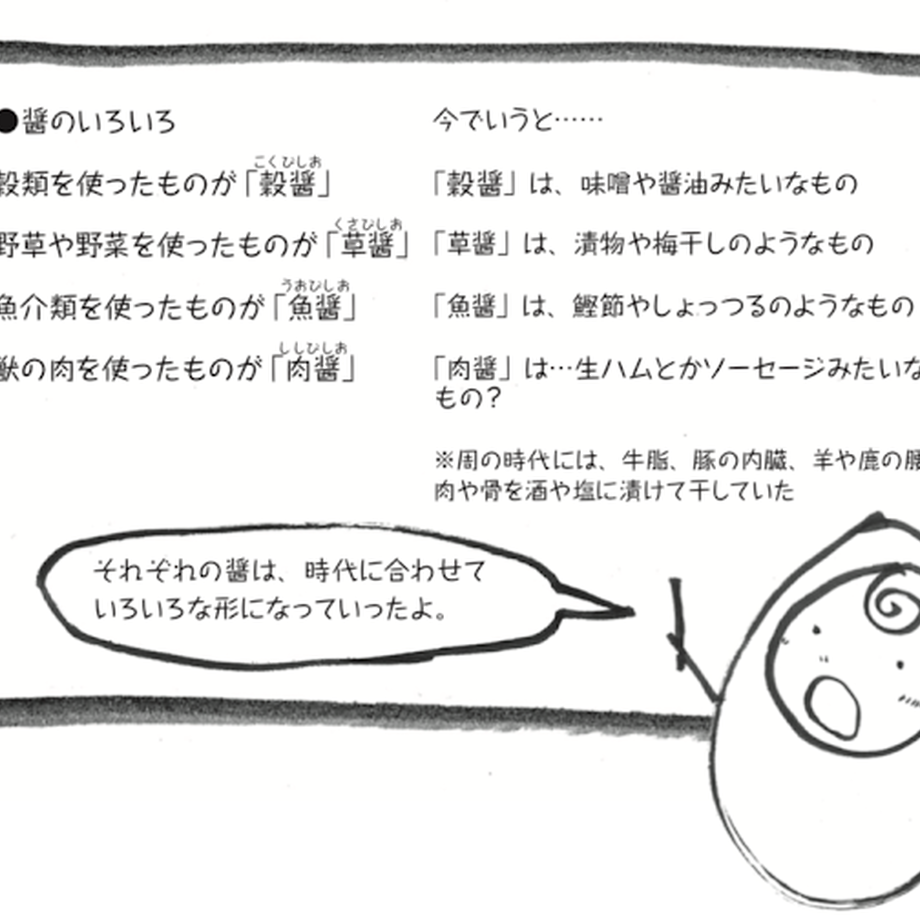 ●醤のいろいろ
穀類を使ったものが「穀醤」
こくびしお
野草や野菜を使ったものが「草醤」
くさびしお
魚介類を使ったものが「魚醤」
うおびしお
獣の肉を使ったものが「肉醤」
ししびしお
今でいうと……
「穀醤」は、味噌や醤油みたいなもの
「草醤」は、漬物や梅干しのようなもの
「魚醤」は、鰹節やしょっつるのようなもの
「肉醤」は…生ハムとかソーセージみたいな
もの？
※周の時代には、牛脂、豚の内臓、羊や鹿の腰
肉や骨を酒や塩に漬けて干していた
それぞれの醤は、時代に合わせて
いろいろな形になっていったよ。